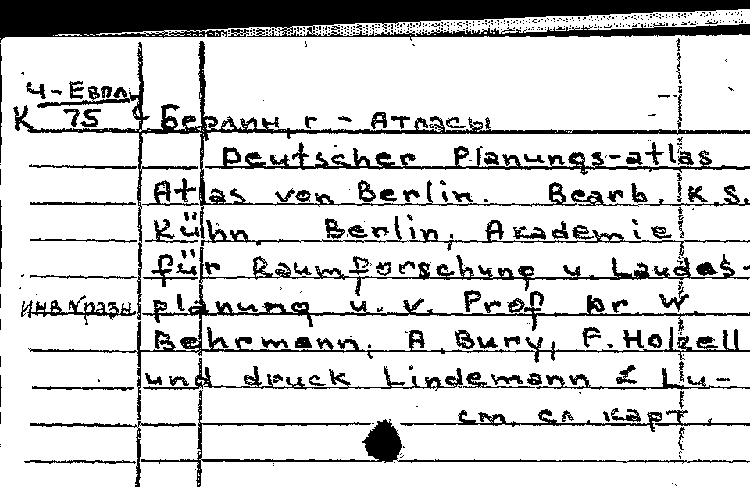 Ч-Евпл
К 75 Берлин, г - Атласы
Deutscher Planungs-atlas
Atlas von Berlin. Bearb. K.S.
Kühn. Berlin, Akademie
für Raumforschung u. Landes-
инв. № разн. planung u. v. Prof Dr W.
Behrmann, A. Bury, F. Holzell
und druck Lindemann & Lu-
см. сл. карт.